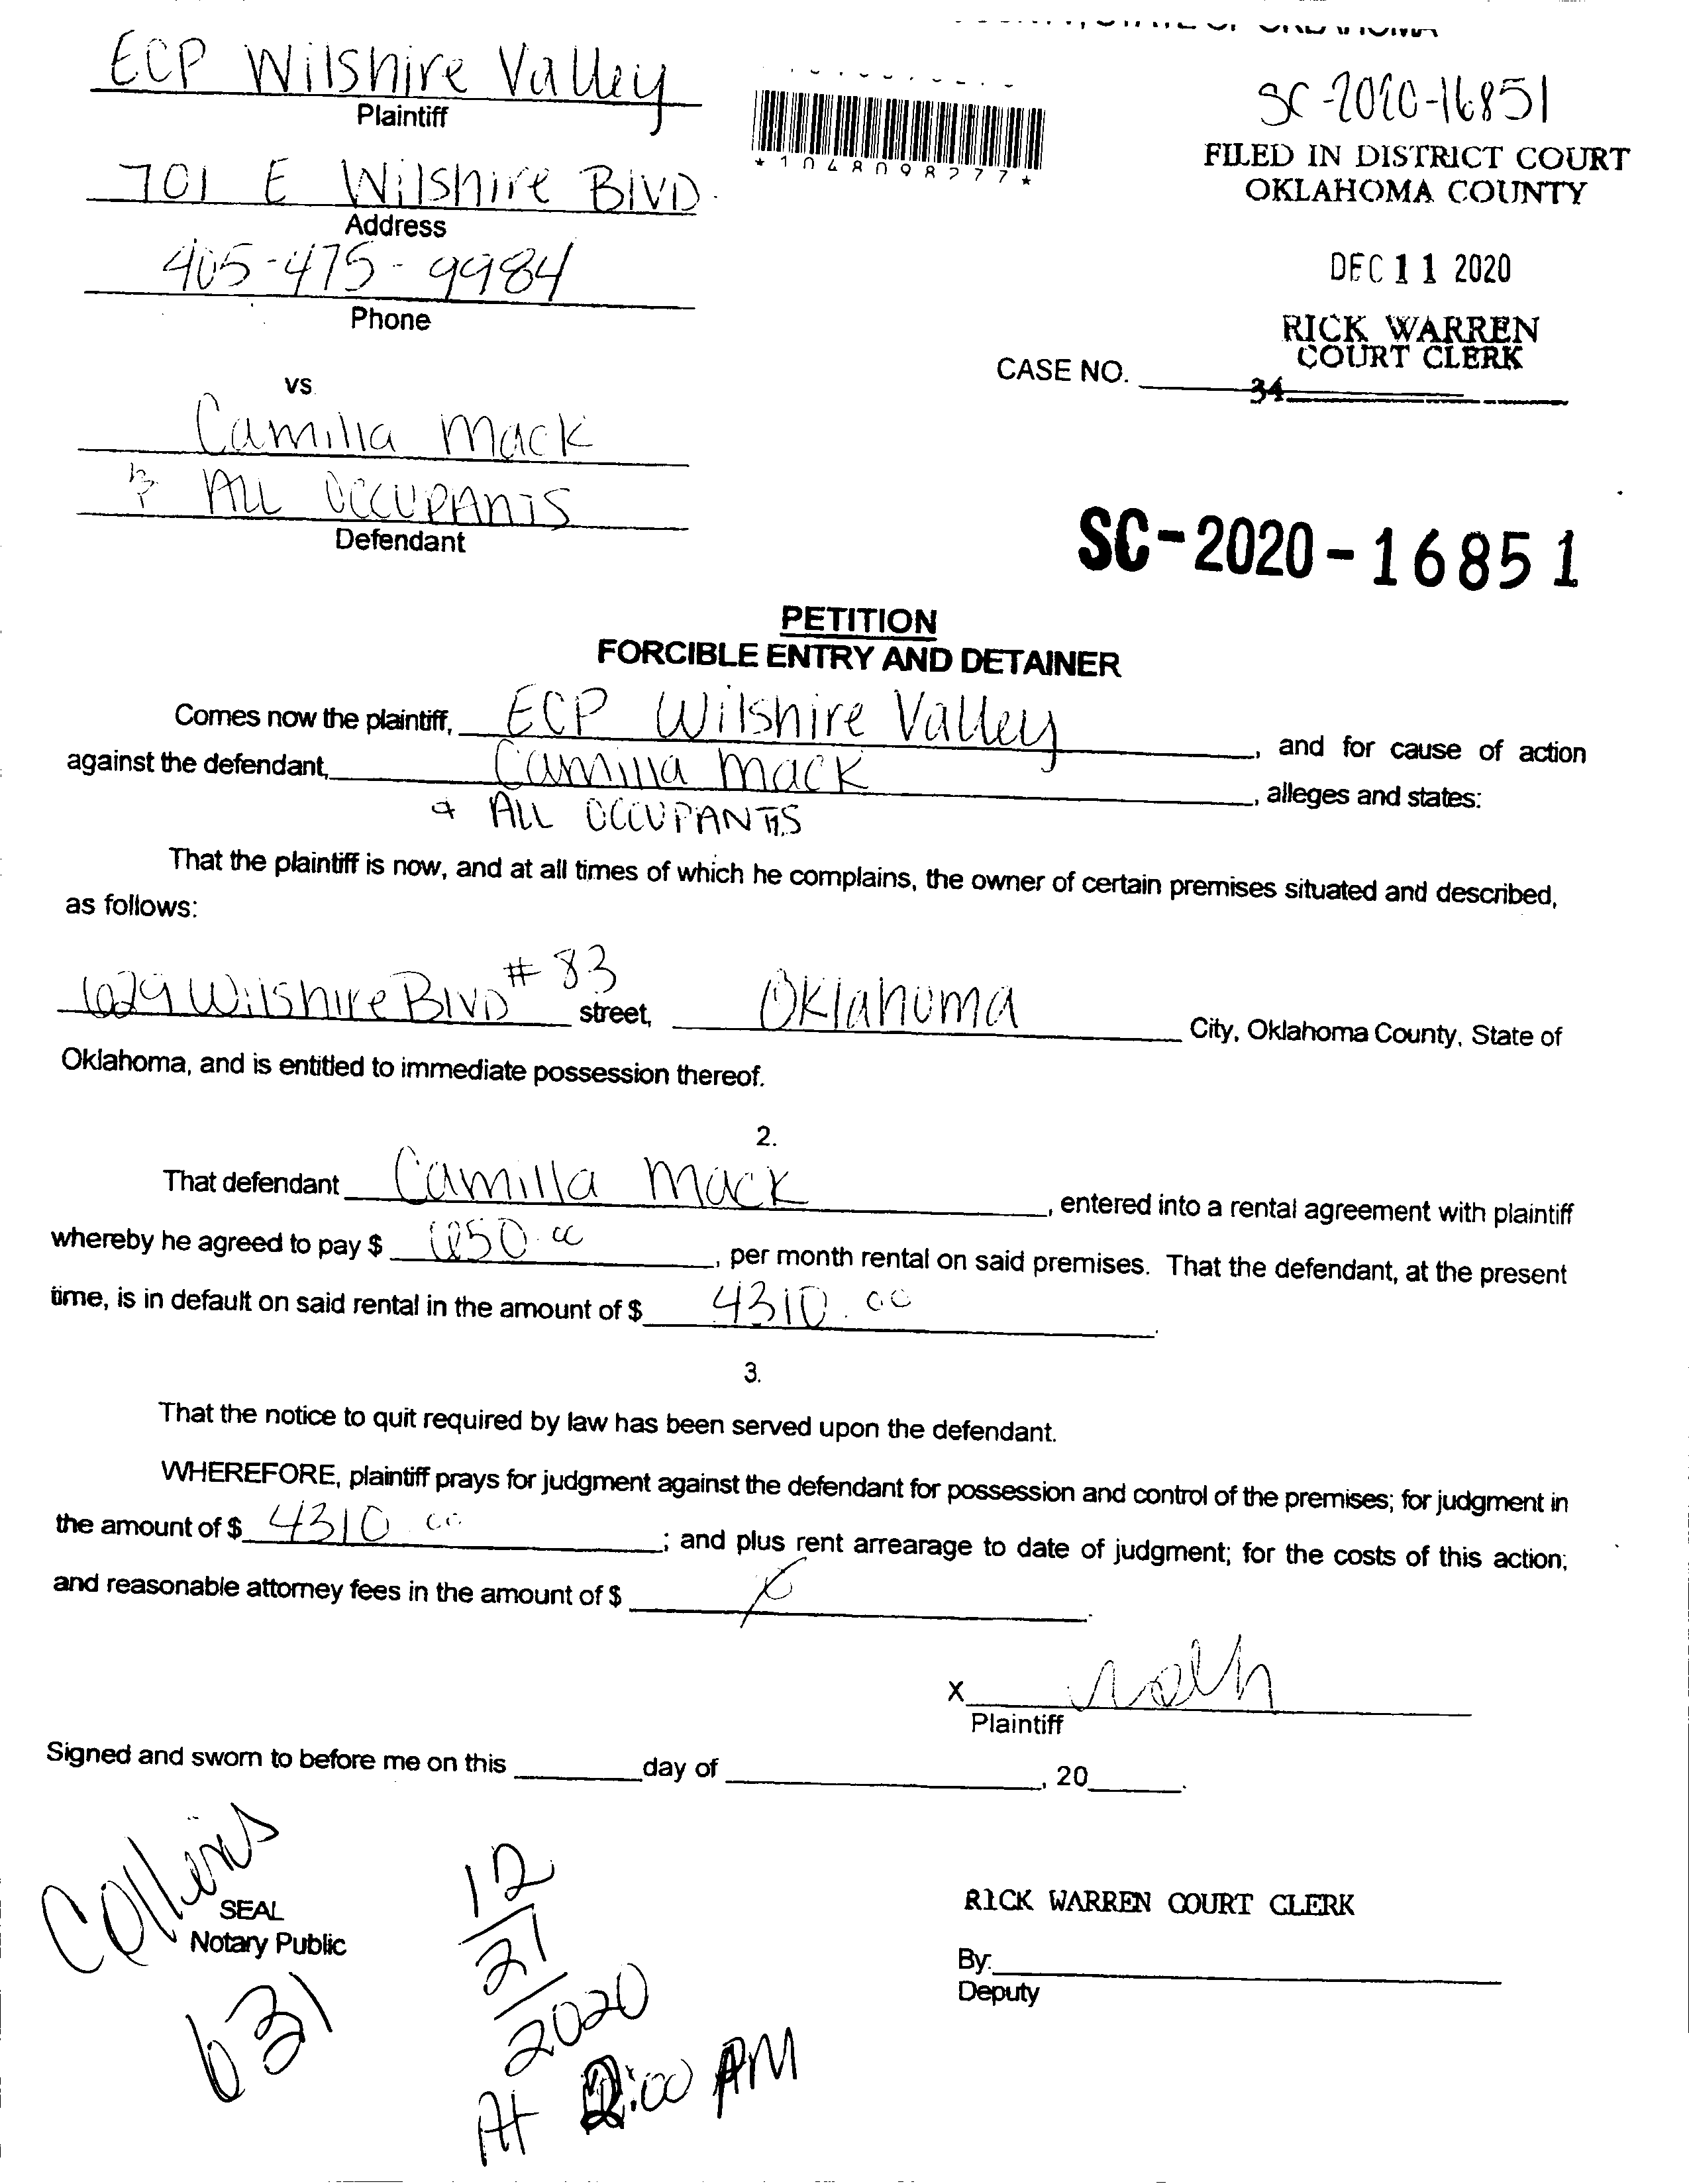 ECP Wilshire Valley
Plaintiff
701 E Wilshire BlVD.
Address
405-475-9984
Phone
vs
Camilla Mack
& ALL OCCUPANTS
Defendant
SC-2020-16851
FILED IN DISTRICT COURT
OKLAHOMA COUNTY
DEC 11 2020
RICK WARREN
COURT CLERK
CASE NO.
34
SC-2020-16851
PETITION
FORCIBLE ENTRY AND DETAINER
Comes now the plaintiff, ECP Wilshire Valley, and for cause of action
against the defendant, Camilla Mack, alleges and states:
& ALL OCCUPANTS
That the plaintiff is now, and at all times of which he complains, the owner of certain premises situated and described,
as follows:
629 Wilshire BlVD # 83 street, Oklahoma City, Oklahoma County, State of
Oklahoma, and is entitled to immediate possession thereof.
2.
That defendant Camilla Mack, entered into a rental agreement with plaintiff
whereby he agreed to pay $ 650.00, per month rental on said premises. That the defendant, at the present
time, is in default on said rental in the amount of $ 4310.00.
3.
That the notice to quit required by law has been served upon the defendant.
WHEREFORE, plaintiff prays for judgment against the defendant for possession and control of the premises; for judgment in
the amount of $ 4310.00; and plus rent arrearage to date of judgment; for the costs of this action;
and reasonable attorney fees in the amount of $
X
Plaintiff
Signed and sworn to before me on this day of , 20 .
Collins
SEAL
Notary Public
631
12
21
2020
At 2:00 PM
RICK WARREN COURT CLERK
By:
Deputy